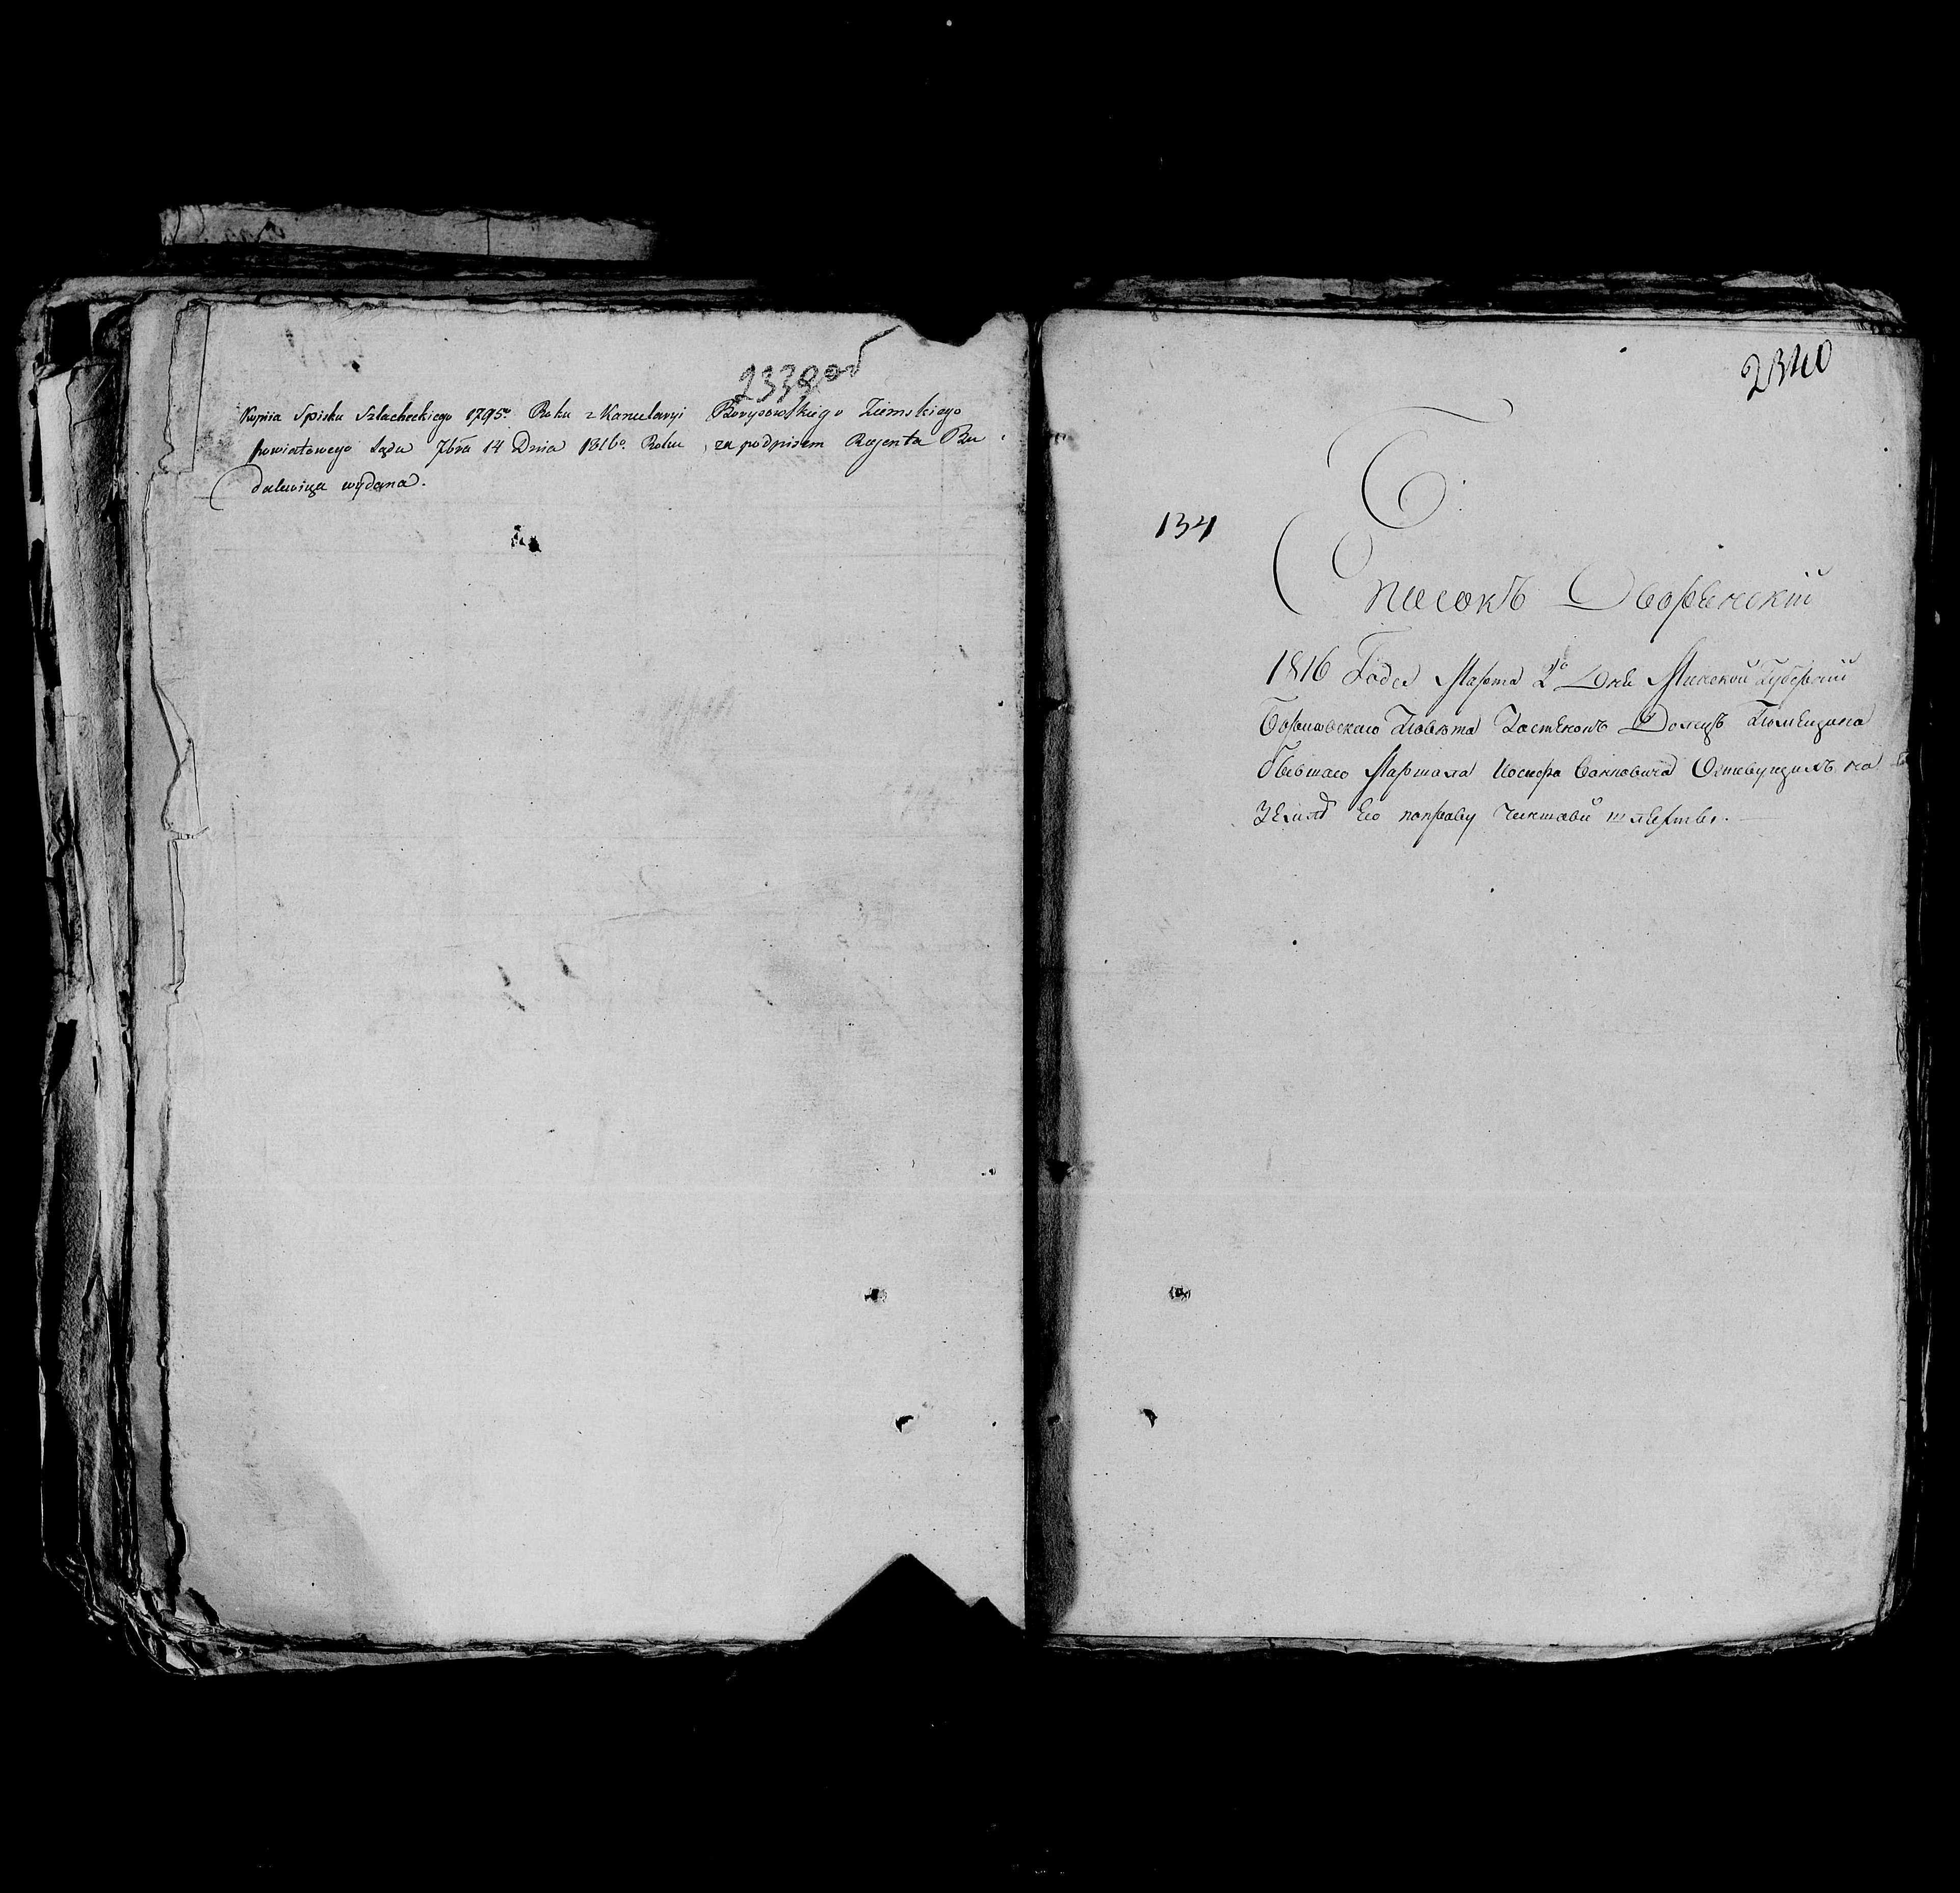 2339об
Kopiia Spisku Szlacheckiego 1795o Roku z Kancelaryi Borysowskiego Ziemskiego
powiatowego Sądu 7bra 14 Dnia 1816o Roku, za podpisem Rejenta Bu
dalewicza wydana.
2340
134
Списокъ Дворенскій
1816 Года Марта 2го Дня Минской Губерніи
Борисовскаго Повѣта Застенокъ Помещика
бывшаго Маршала Иосифа на
Земля Его поправу